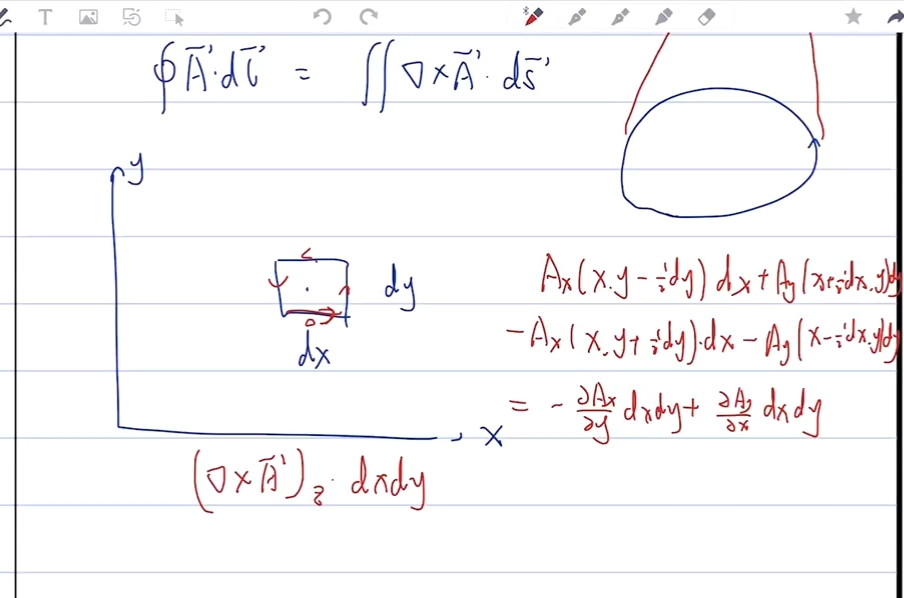 ∮A⃗·dl⃗ = ∬∇×A⃗·ds⃗
y
Ax(x,y-½dy)dx+Ay(x+½dx,y)dy
dy
-Ax(x,y+½dy)·dx-Ay(x-½dx,y)dy
dx
= -∂Ax/∂y dxdy+ ∂Ay/∂x dxdy
x
(∇×A⃗)z·dxdy